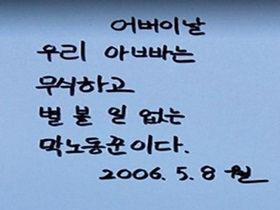 어버이날
우리 아빠는
무식하고
별 볼 일 없는
막노동꾼이다.
2006. 5. 8 월